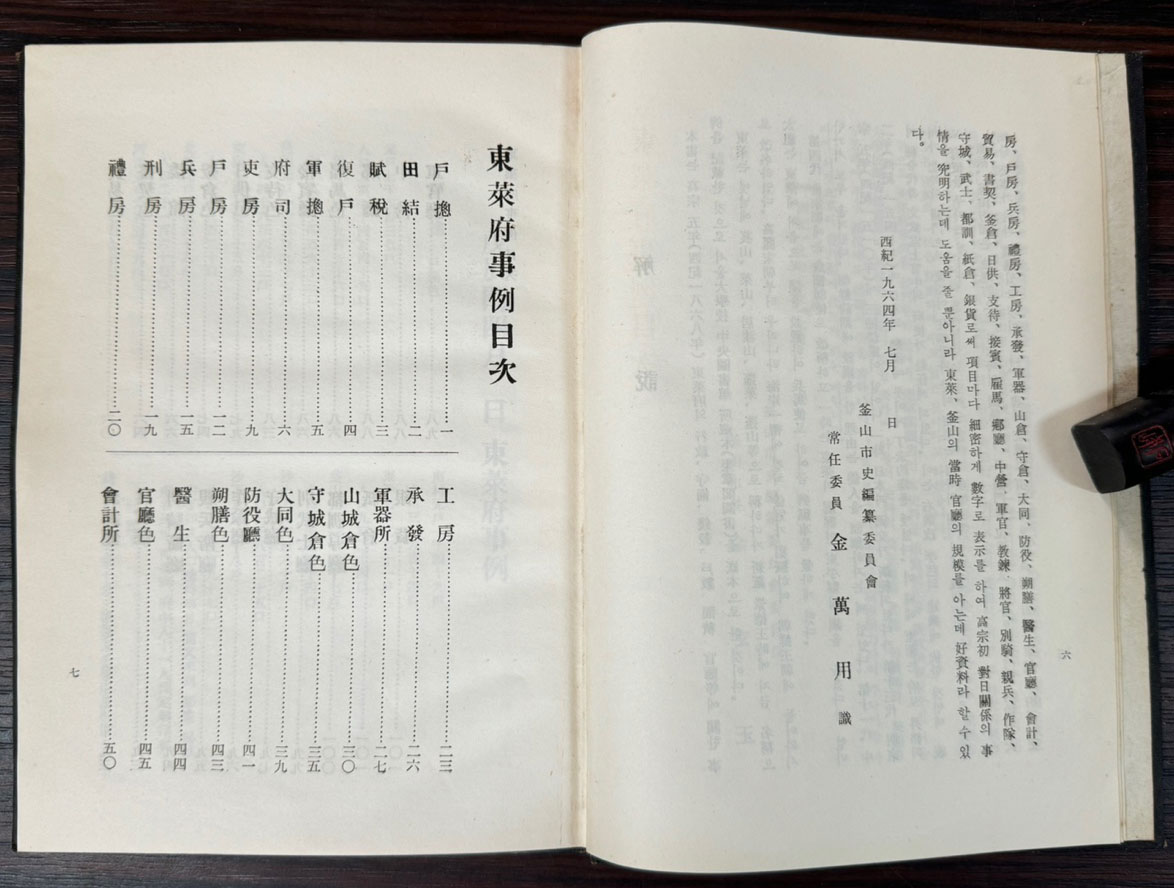 房、戶房、兵房、禮房、工房、承發、軍器、山倉、守倉、大同、防役、朔膳、醫生、官廳、會計、
貿易、書契、釜倉、日供、支待、接賓、雇馬、鄕廳、中營、軍官、敎鍊、將官、別騎、親兵、作隊、
守城、武士、都訓、紙倉、銀貨로써 項目마다 細密하게 數字로 表示를 하여 高宗初 對日關係의 事
情을 究明하는데 도움을 줄 뿐아니라 東萊、釜山의 當時 官廳의 規模를 아는데 好資料라 할수있
다。
西紀一九六四年 七月 日
釜山市史編纂委員會
常任委員 金萬用 識
六
東萊府事例目次
戶摠 一
田結 二
賦稅 三
復戶 四
軍摠 五
府司 六
吏房 九
戶房 一二
兵房 一五
刑房 一九
禮房 二〇
工房 二三
承發 二六
軍器所 二七
山城倉色 三〇
守城倉色 三五
大同色 三九
防役廳 四一
朔膳色 四三
醫生 四四
官廳色 四五
會計所 五〇
七